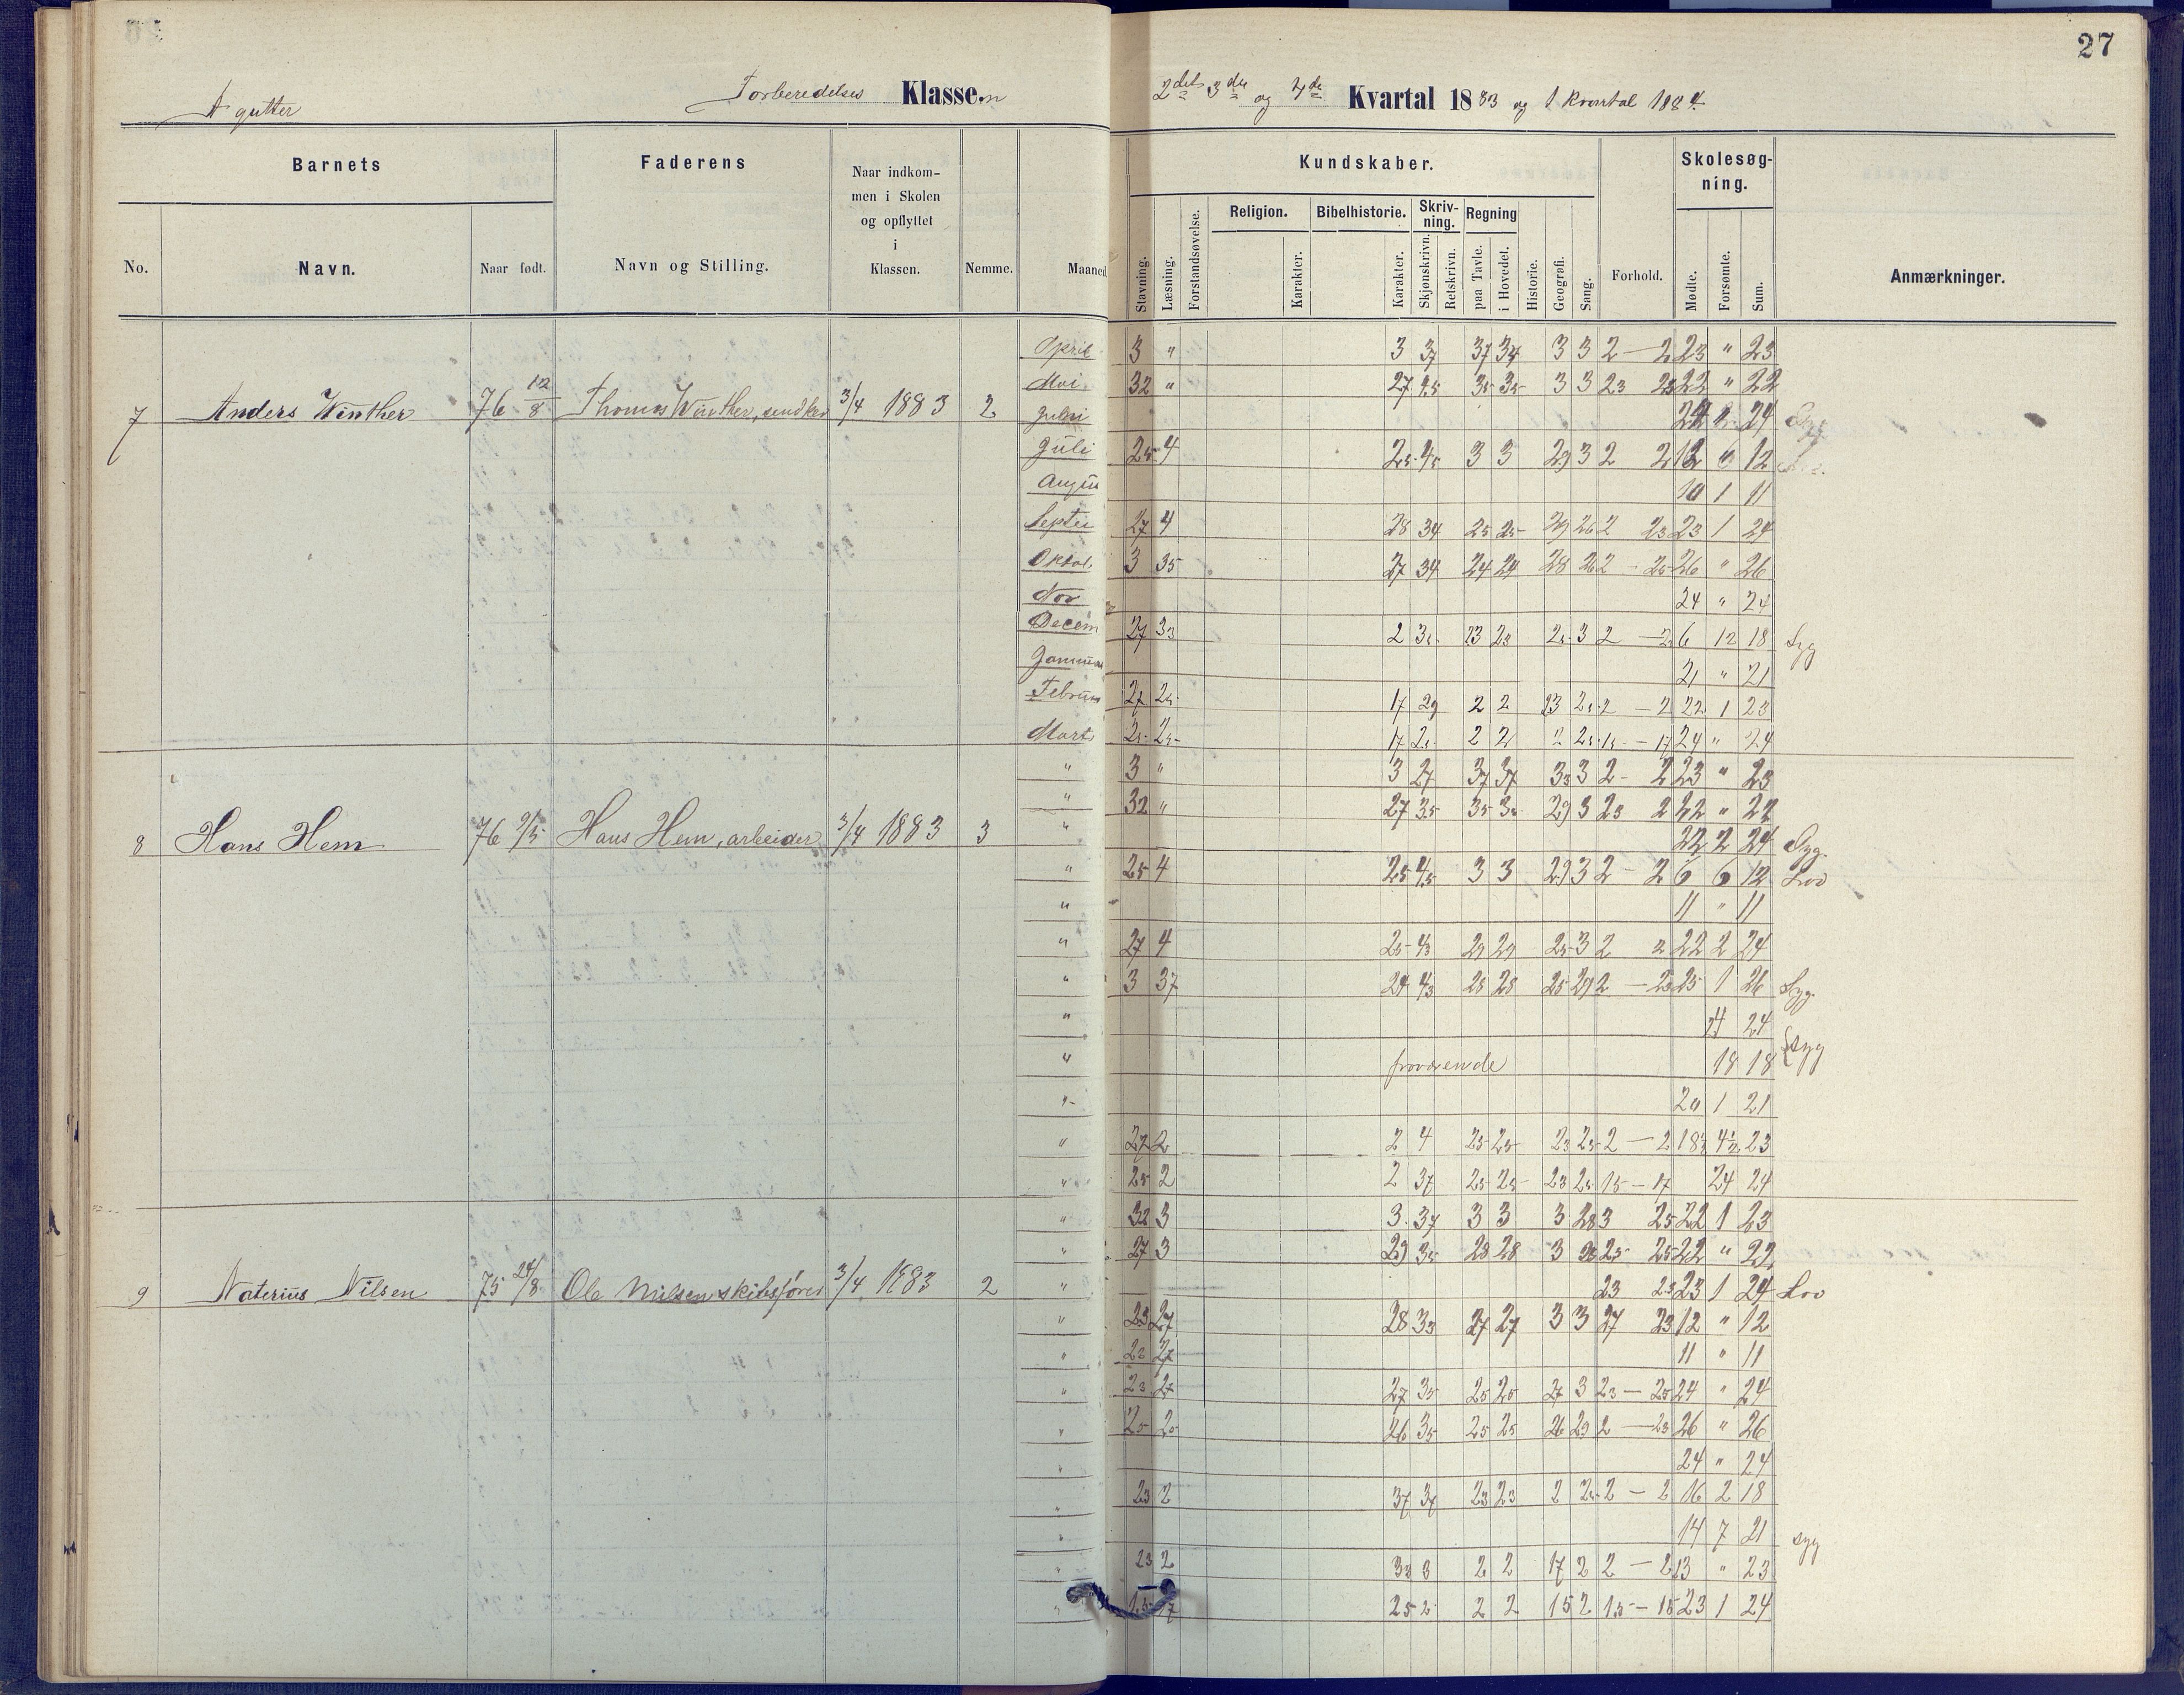 27
A gutter
Forberedelses Klassen
2det 3die og 4de Kvartal 1883 og 1 kvartal 1884
Barnets
Faderens
Naar indkom-
men i Skolen
og opflyttet
i
Klassen.
Nemme.
Maaned.
No.
Navn.
Naar født.
Navn og Stilling.
Kundskaber.
Skolesøg-
ning.
Religion.
Bibelhistorie.
Skriv-
ning.
Regning
Stavning.
Læsning.
Forstandsøvelse.
Karakter.
Karakter.
Skjønskrivn.
Retskrivn.
paa Tavle.
i Hovedet.
Historie.
Geografi.
Sang.
Forhold.
Mødte.
Forsømte.
Sum.
Anmærkninger.
April 3 " 3 37 37 34 3 3 2 — 2 23 " 23
Mai 32 " 27 45 35 35 3 3 23 23 22 " 22
7 Anders Winther 76 12/8 Thomas Winther, 3/4 1883 2 24
Juli 25 4 25 45 3 3 29 3 2 2 12 12
Augu 10 1 11
Septe 27 4 28 34 25 25 29 26 2 23 23 1 24
Oktob. 3 35 27 34 24 24 28 26 2 — 25 26 " 26
Nov 24 " 24
Decem 27 33 2 35 23 23 25 3 2 — 2 6 12 18 Syg
Januar 21 " 21
Februar 27 25 17 29 2 2 23 25 2 — 2 22 1 23
Marts 25 25 17 25 2 2 2 25 15 — 17 24 " 24
" 3 " 3 27 37 37 33 3 2 - 2 23 " 23
" 32 " 27 35 35 35 29 3 23 2 22 " 22
8 Hans Hem 76 9/5 Hans Hem, arbeider 3/4 1883 3 " 22 2 24 Syg.
" 25 4 25 45 3 3 29 3 2 — 2 6 6 12 Lov
" 11 " 11
" 27 4 25 43 29 29 25 3 2 2 22 2 24
" 3 37 24 43 28 28 25 29 2 — 23 25 1 26 Syg
" 24 24
" fraværende 18 18 { syg
" 20 1 21
" 27 2 2 4 25 25 23 25 2 — 2 18½ 4½ 23
" 25 2 2 37 25 25 23 25 15 — 17 24 24
" 32 3 3 37 3 3 3 28 3 25 22 1 23
" 27 3 29 35 28 28 3 23 25 25 22 " 22
9 Naterius Nilsen 75 24/8 Ole Nilsen skibsfører 3/4 1883 2 " 23 23 23 1 24 Lov
" 23 27 28 33 27 27 3 3 27 23 12 " 12
" 22 27 11 " 11
" 23 27 27 35 25 25 27 3 23 — 25 24 " 24
" 25 25 26 35 25 25 26 29 2 — 23 26 " 26
" 24 " 24
" 23 2 37 37 23 23 2 25 2 — 2 16 2 18
" 14 7 21 syg
" 23 2 33 3 2 2 17 2 2 — 2 " 23
" 15 17 25 2 2 2 15 2 15 — 15 23 1 24